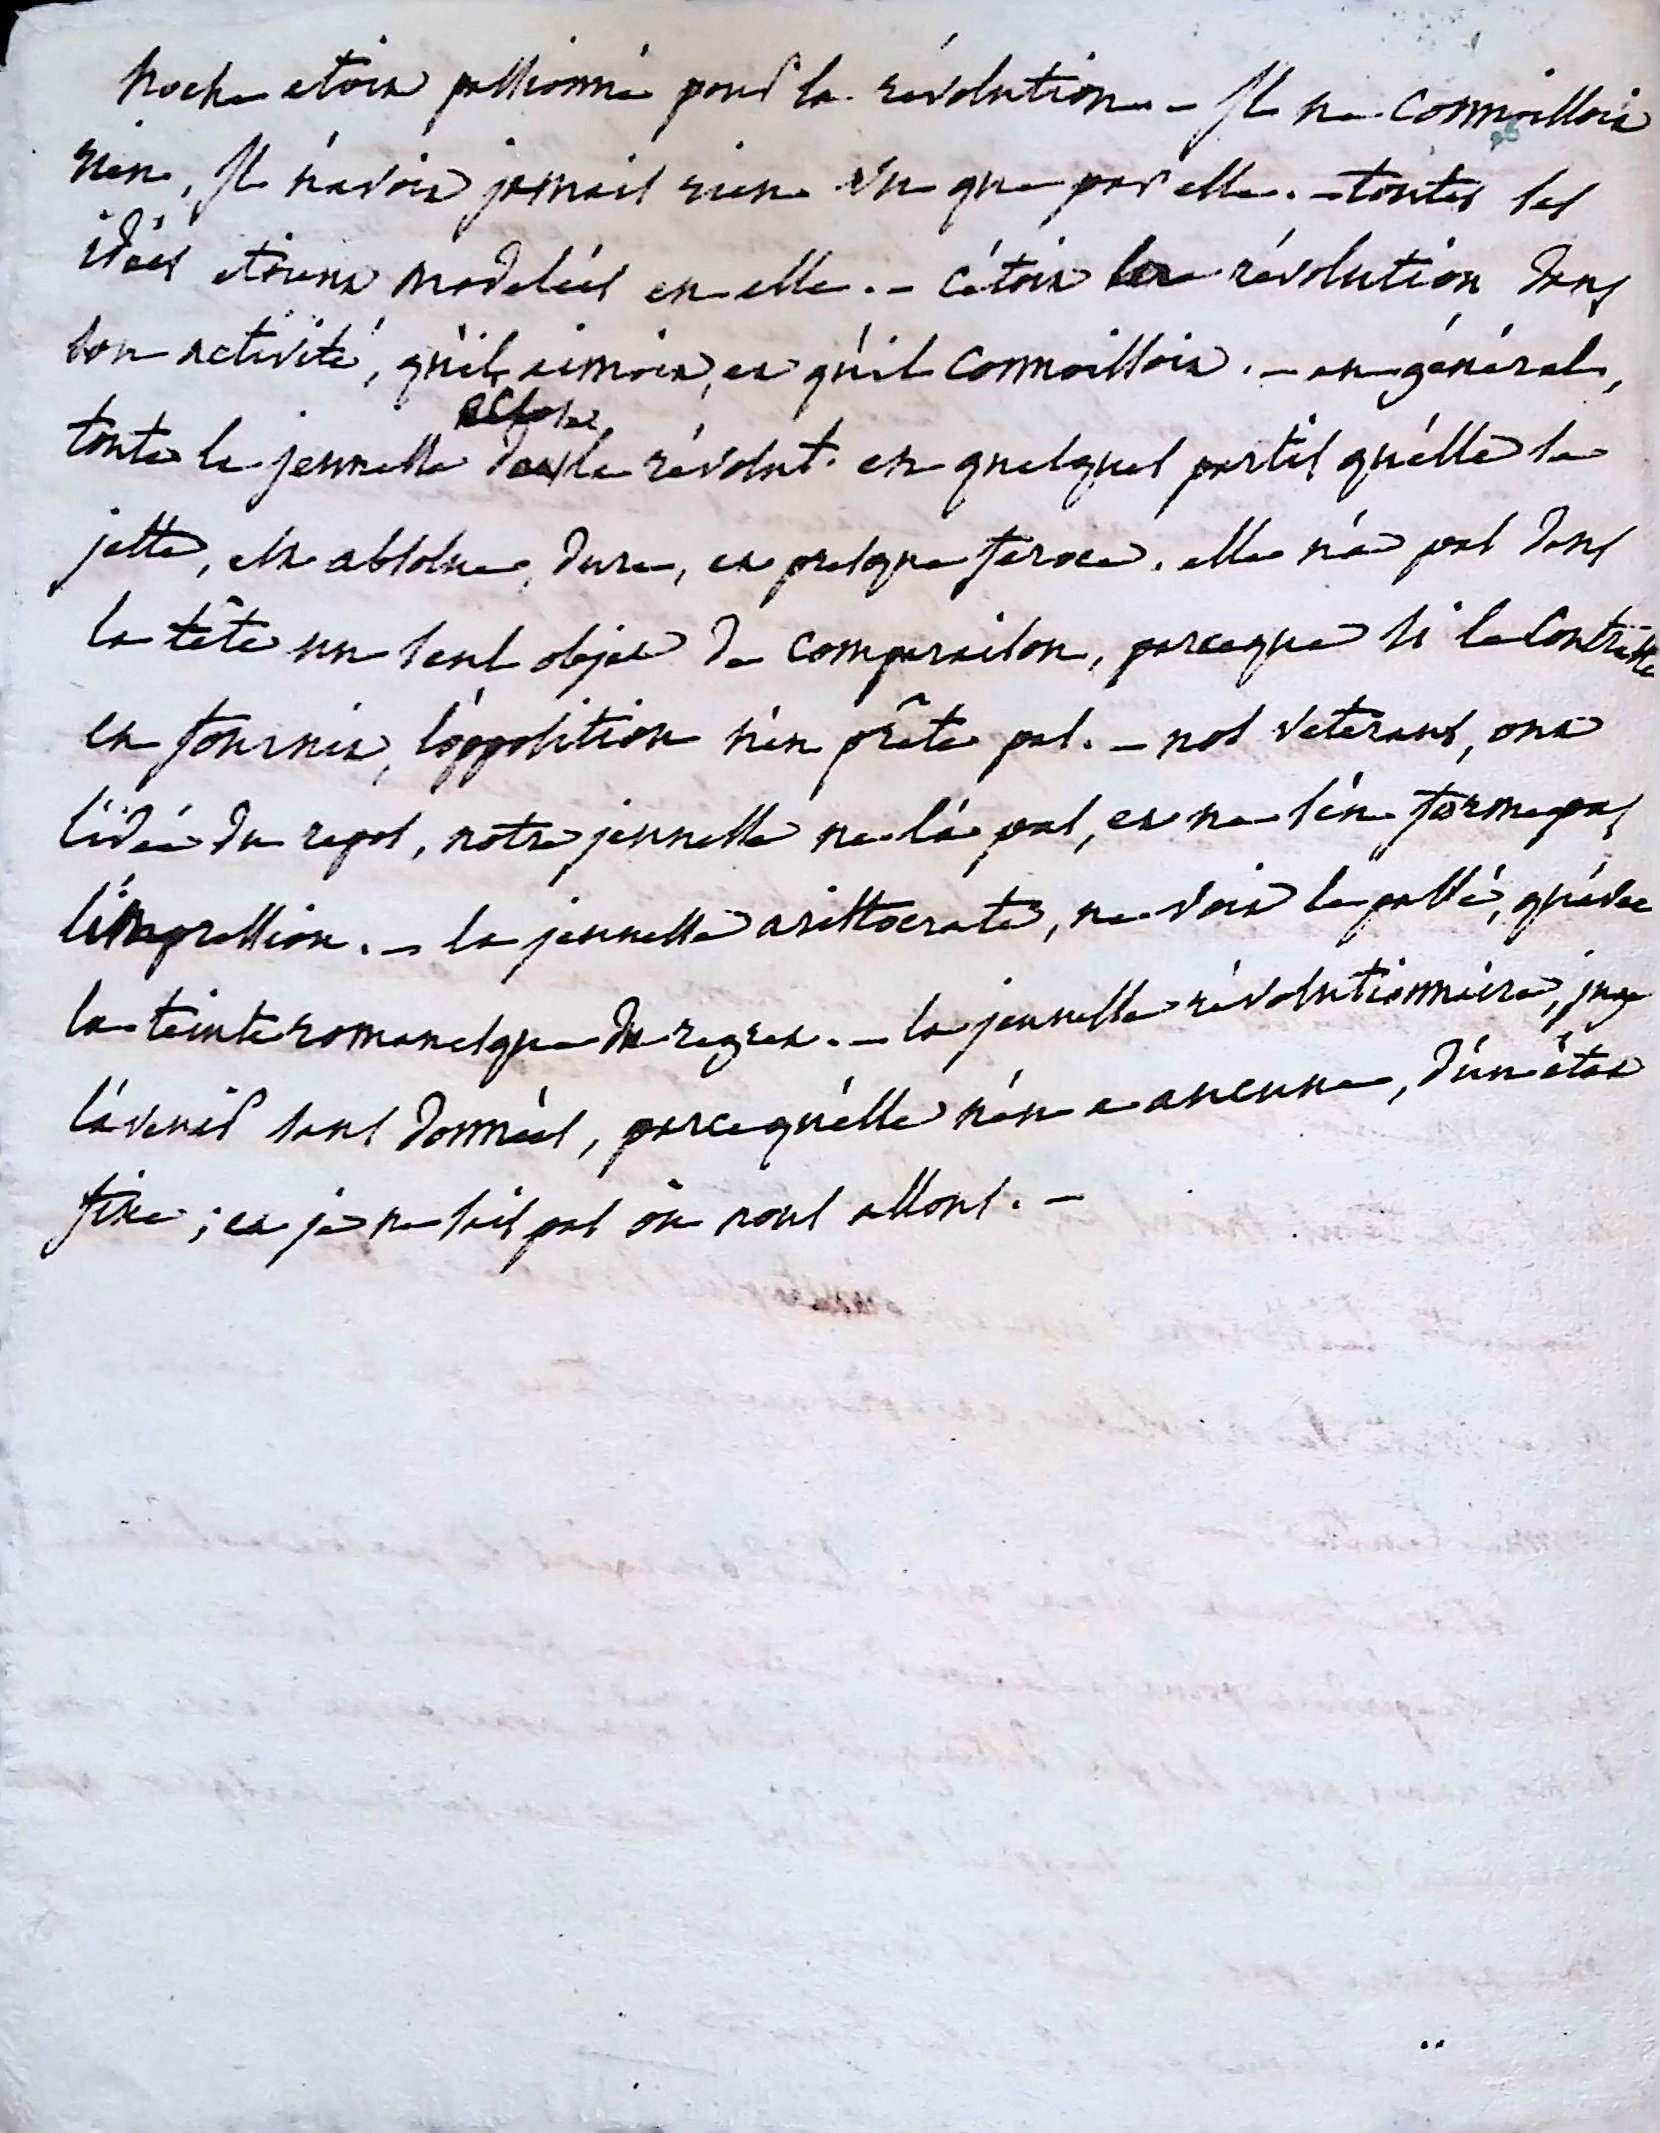 hoche etoit passionné pour la révolution. – Il ne connoissoit
rien, Il n'avoit jamais rien vu que par elle. – toutes ses
idées etoient modelées en elle. – c'étoit la révolution dans
son activité, qu'il aimoit, et qu'il connoissoit. – en général,
toute la jeunesse de la révolut. en quelques partis qu'elle se
jette, est absolue, dure, et presque feroce. elle n'a pas dans
la tête un seul objet de comparaison, parceque si le contraste
en fournit, l'opposition n'en prête pas. – nos veterans, ont
l'idée du repos, notre jeunesse ne l'a pas, et ne s'en forme pas
l'impression. – la jeunesse aristocrate, ne voit le passé, qu'avec
la teinte romanesque du regret. – la jeunesse révolutionnaire, juge
l'avenir sans données, parce qu'elle n'en a aucune, d'un état
fixe ; et je ne sais pas où nous allons. –